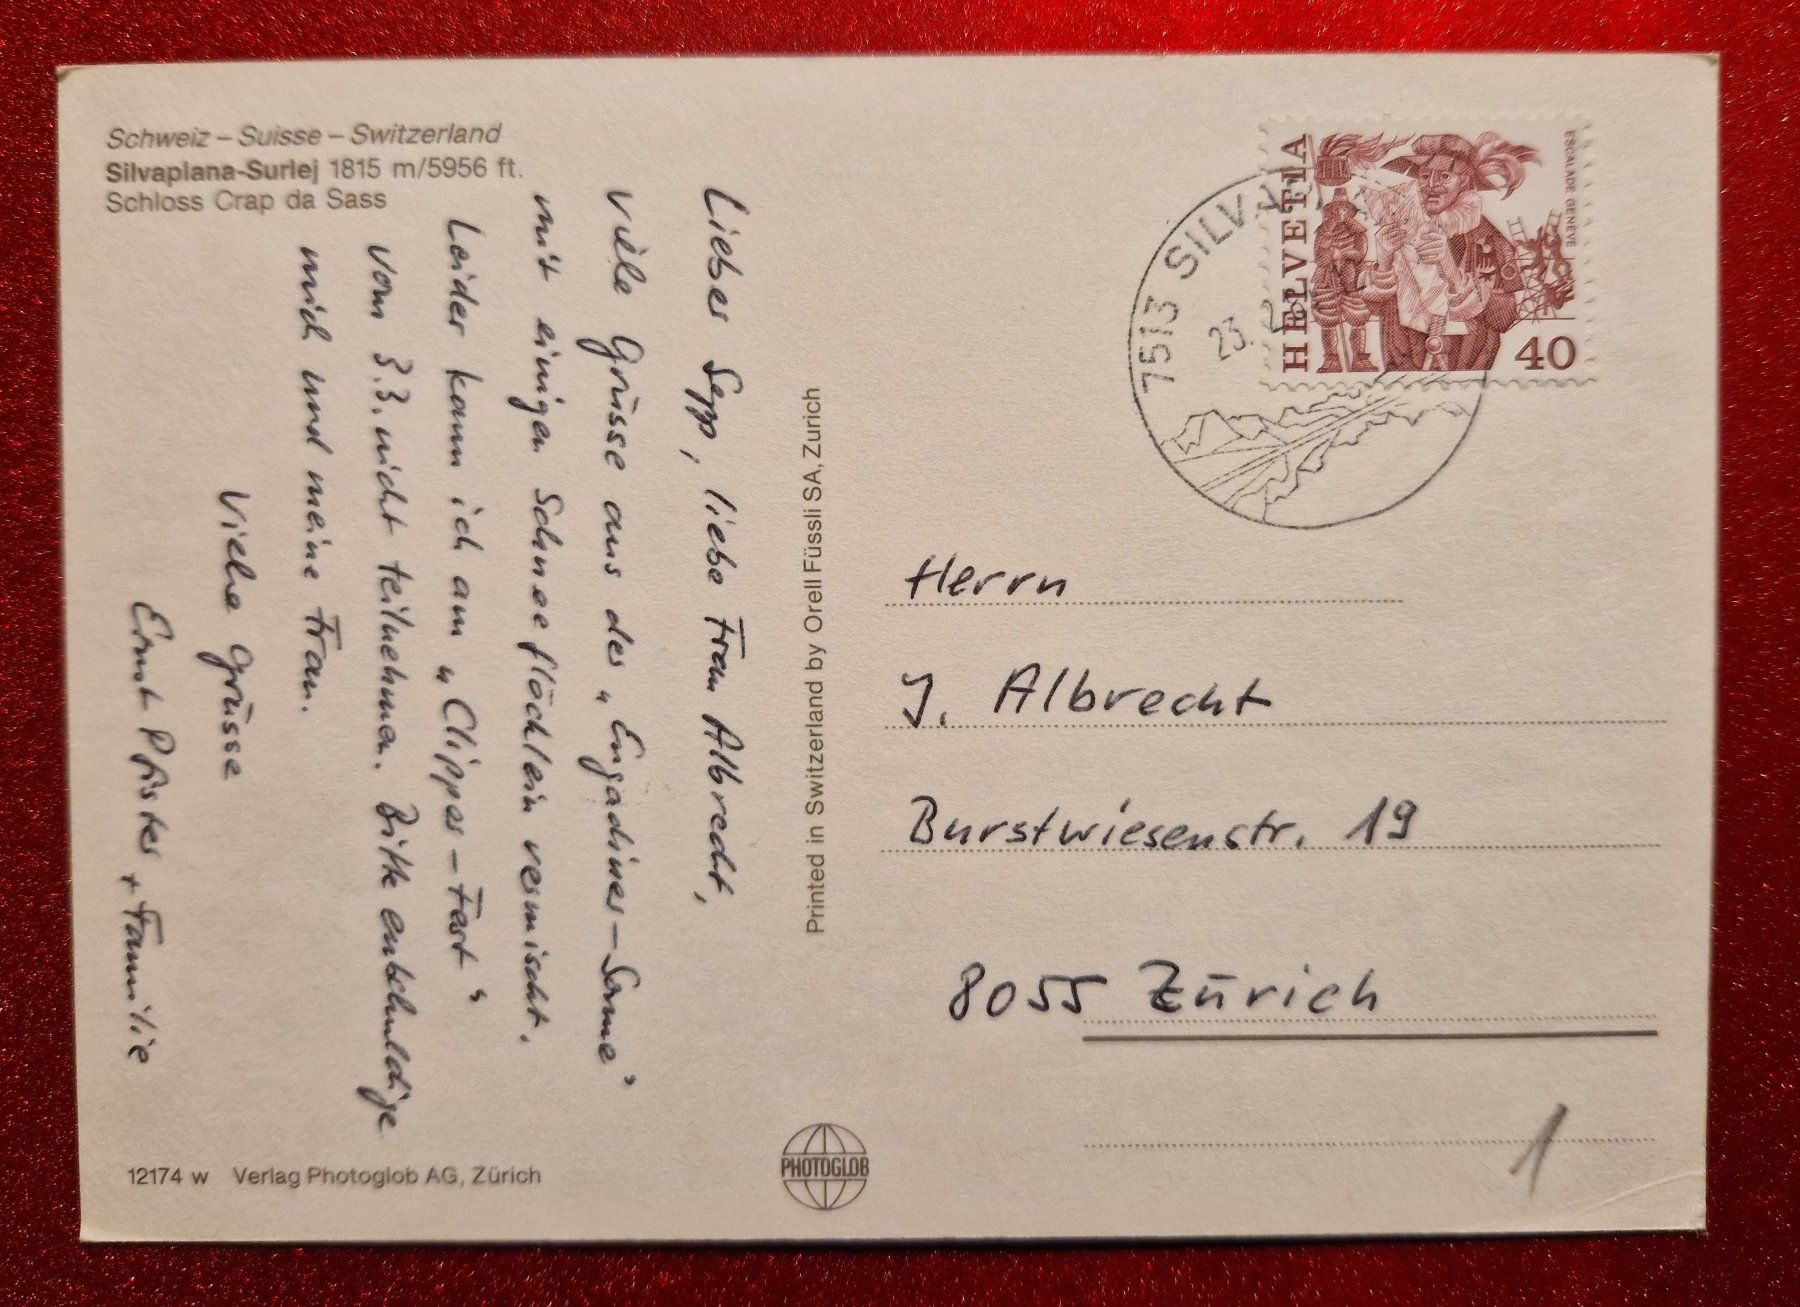 Schweiz – Suisse – Switzerland
Silvaplana-Surlej 1815 m/5956 ft.
Schloss Crap da Sass
Lieber Sepp, liebe Frau Albrecht,
viele Grüsse aus der „Engadiner-Sonne"
mit einigen Schneeflöcklein vermischt.
Leider kann ich am „Clipper-Fest"
vom 3.3. nicht teilnehmen. Bitte entschuldige
mich und meine Frau.
Viele Grüsse
Ernst Pfister + Familie
12174 w Verlag Photoglob AG, Zürich
Printed in Switzerland by Orell Füssli SA, Zurich
PHOTOGLOB
HELVETIA
ESCALADE GENÈVE
40
7513 SILVA
23. 2.
Herrn
J. Albrecht
Burstwiesenstr. 19
8055 Zürich
1